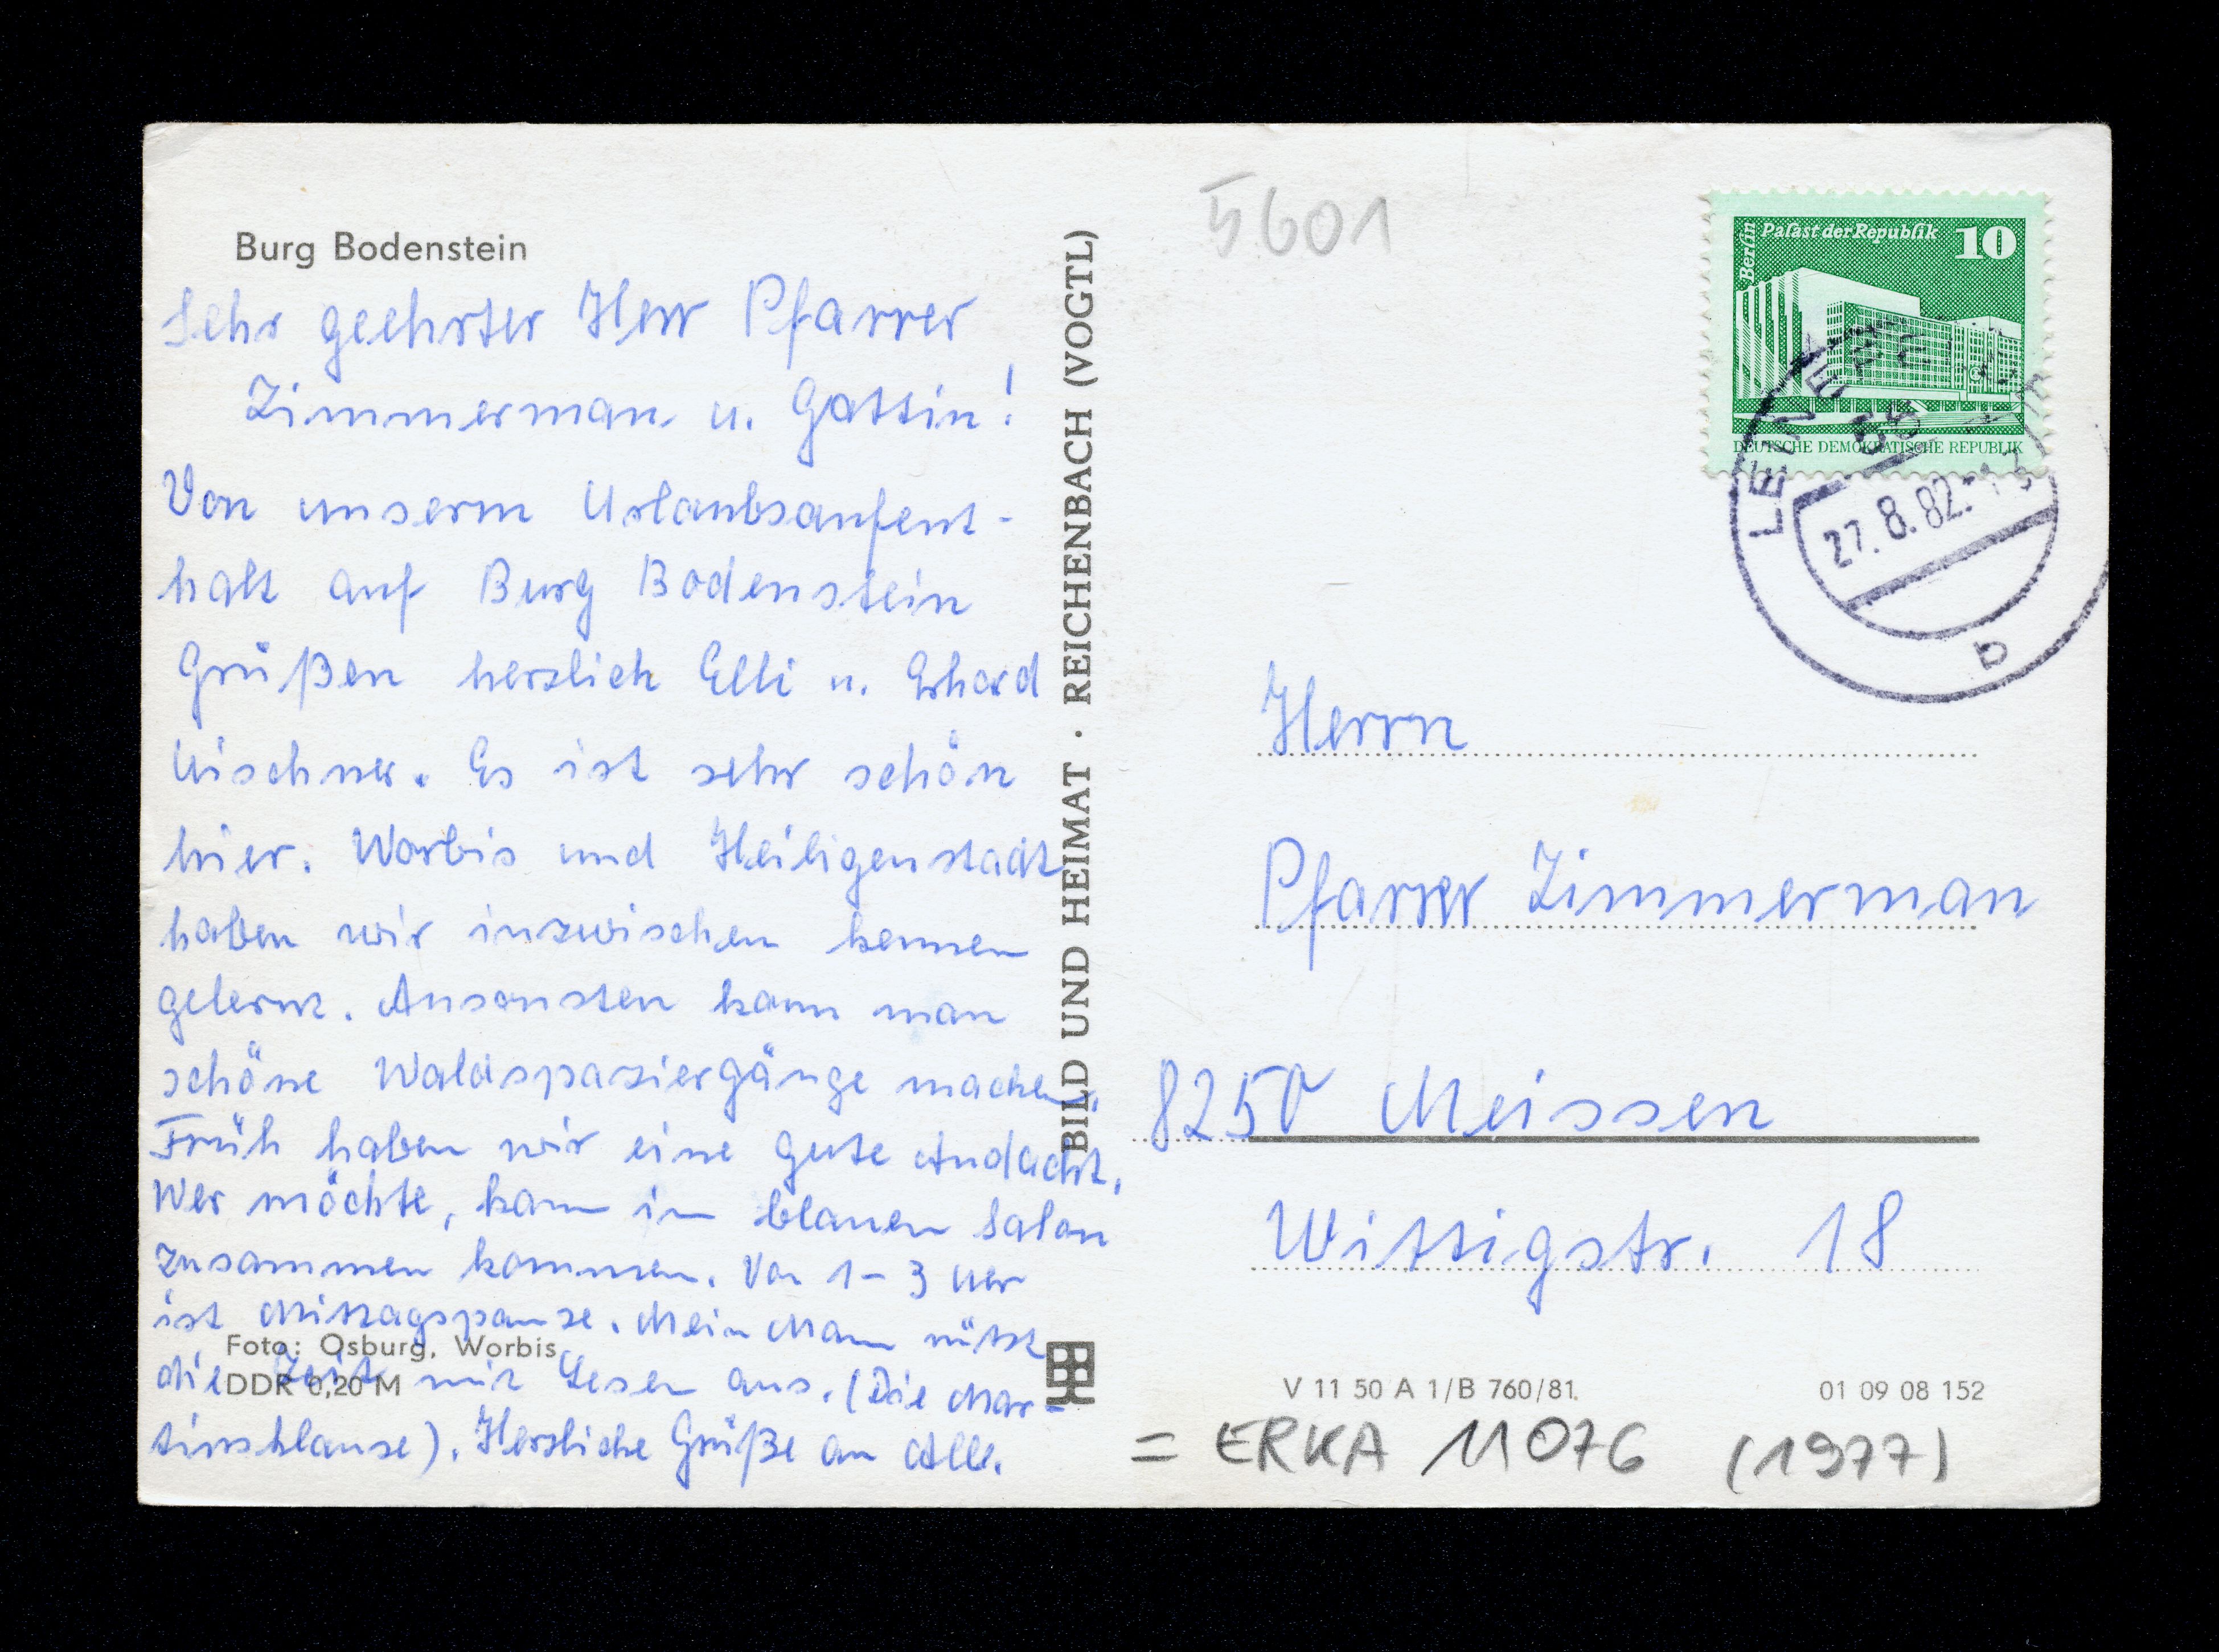 Burg Bodenstein
Sehr geehrter Herr Pfarrer
Zimmerman u. Gattin!
Von unserm Urlaubsaufent-
halt auf Burg Bodenstein
Grüßen herzlich Elli u. Erhard
Uischner. Es ist sehr schön
hier. Worbis und Heiligenstadt
haben wir inzwischen kennen
gelernt. Ansonsten kann man
schöne Waldspaziergänge machen.
Früh haben wir eine gute Andacht.
Wer möchte, kann im blauen Salon
zusammen kommen. Von 1-3 Uer
ist Mittagspause. Mein Mann nützt
die Zeit mit Lesen aus. (Die Mar-
tinsklause). Herzliche Grüße an Alle.
Foto: Osburg, Worbis
DDR 0,20 M
BILD UND HEIMAT · REICHENBACH (VOGTL)
5601
Berlin
Palast der Republik 10
DEUTSCHE DEMOKRATISCHE REPUBLIK
27.8.82
b
Herrn
Pfarrer Zimmerman
8250 Meissen
Wittigstr. 18
V 11 50 A 1/B 760/81.
01 09 08 152
= ERKA 11076 (1977)